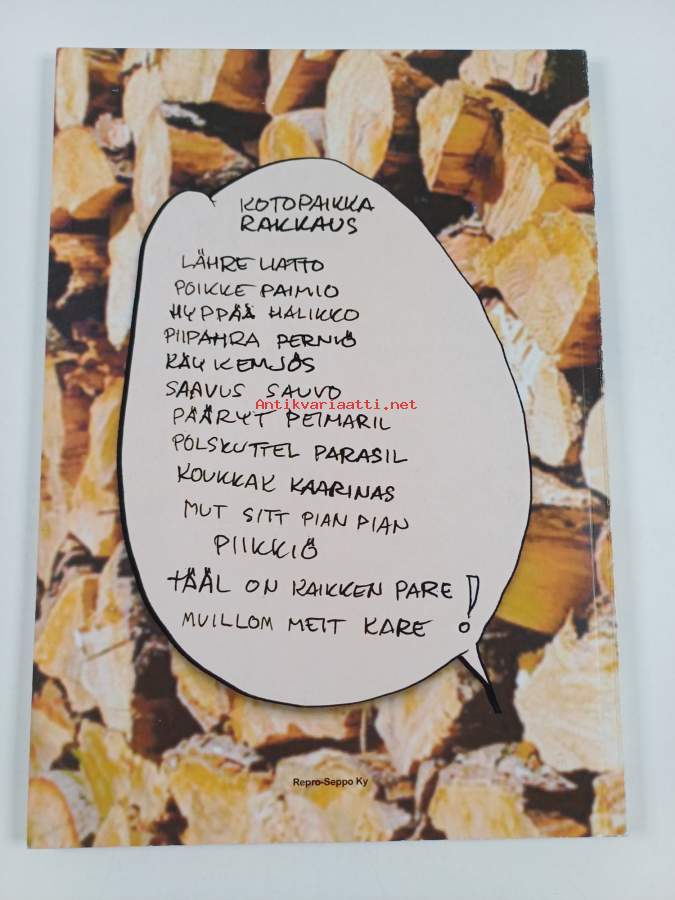 KOTOPAIKKA
RAKKAUS
LÄHRE LIATTO
POIKKE PAIMIO
HYPPÄÄ HALIKKO
PIIPAHRA PERNIÖ
KÄY KEMJÖS
SAAVUS SAUVO
Antikvariaatti.net
PÄÄRYT PEIMARIL
POLSKUTTEL PARASIL
KOUKKAK KAARINAS
MUT SITT PIAN PIAN
PIIKKIÖ
TÄÄL ON KAIKKEN PARE !
MUILLOM MEIT KARE
Repro-Seppo Ky